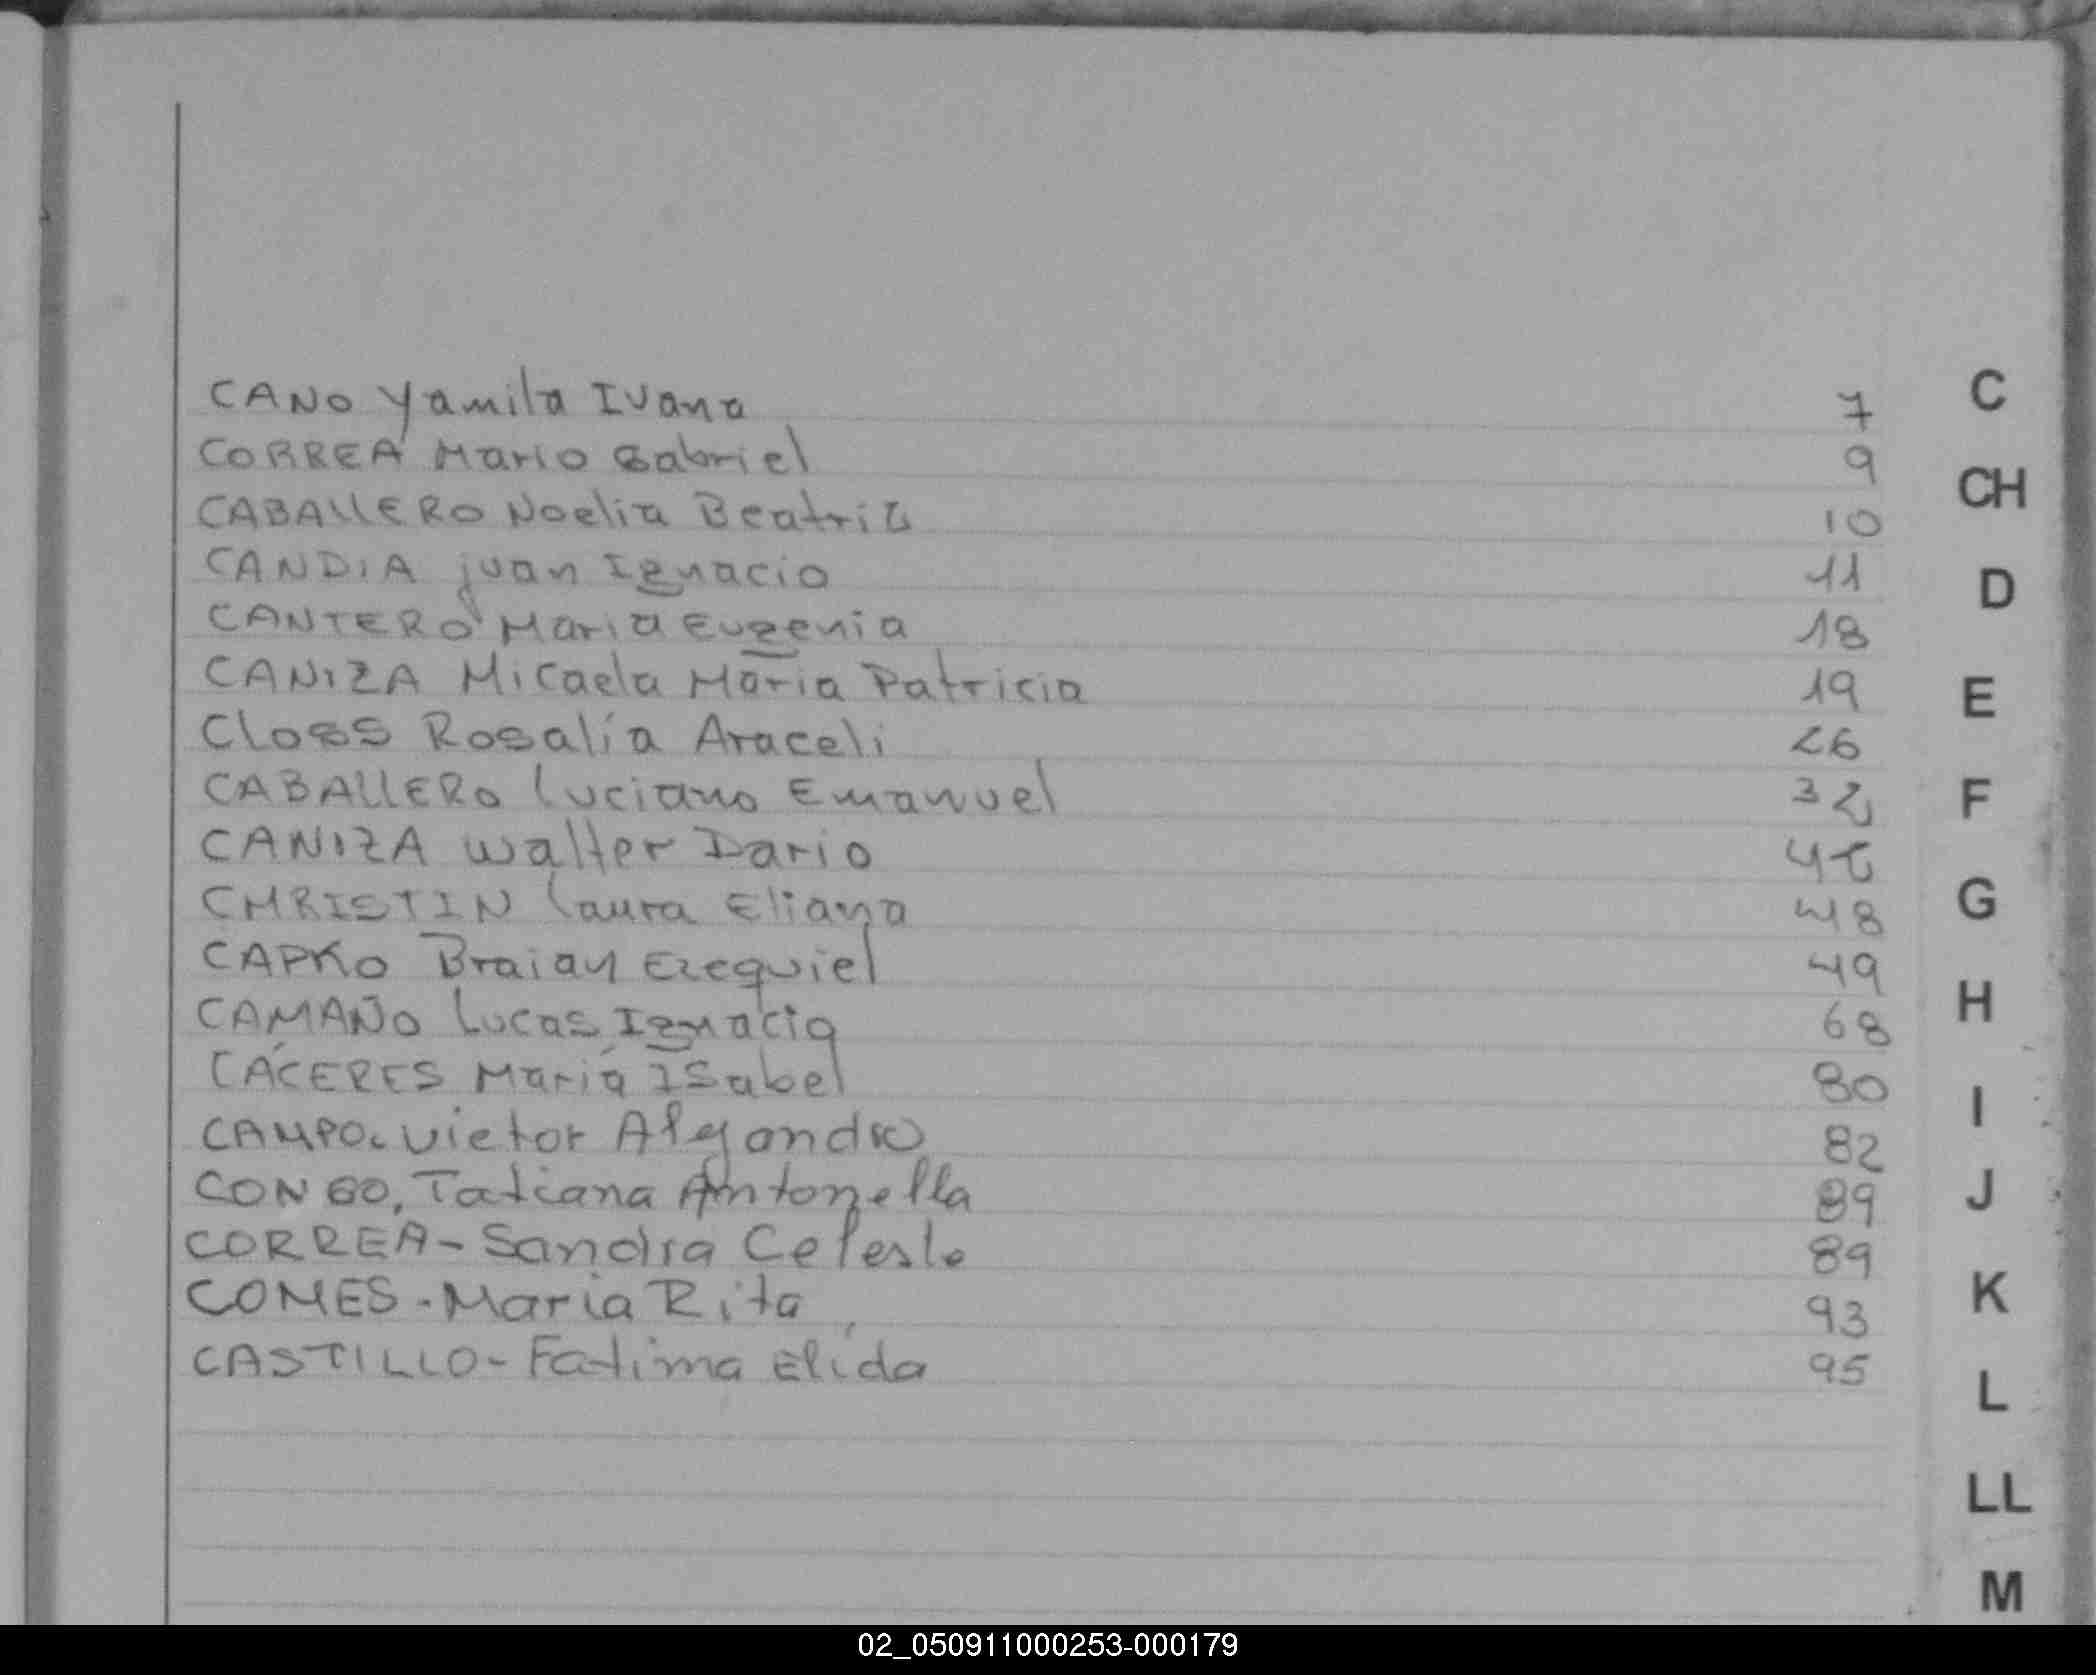 CANO Yamila Ivana 7
CORREA Mario Gabriel 9
CABALLERO Noelia Beatriz 10
CANDIA juan Ignacio 11
CANTERO Maria Eugenia 18
CANIZA Micaela Maria Patricia 19
Closs Rosalía Araceli 26
CABALLERO Luciano Emanuel 32
CANIZA Walter Dario
CHRISTIN Laura Eliana 48
CAPKO Braian Ezequiel 49
CAMAÑO Lucas Ignacio 68
CÁCERES María Isabel 80
CAMPO. Victor Alejandro 82
CONGO, Tatiana Antonella 89
CORREA - Sandra Celeste 89
COMES - Maria Rita 93
CASTILLO - Fatima Elida 95
C
CH
D
E
F
G
H
I
J
K
L
LL
M
02_050911000253-000179